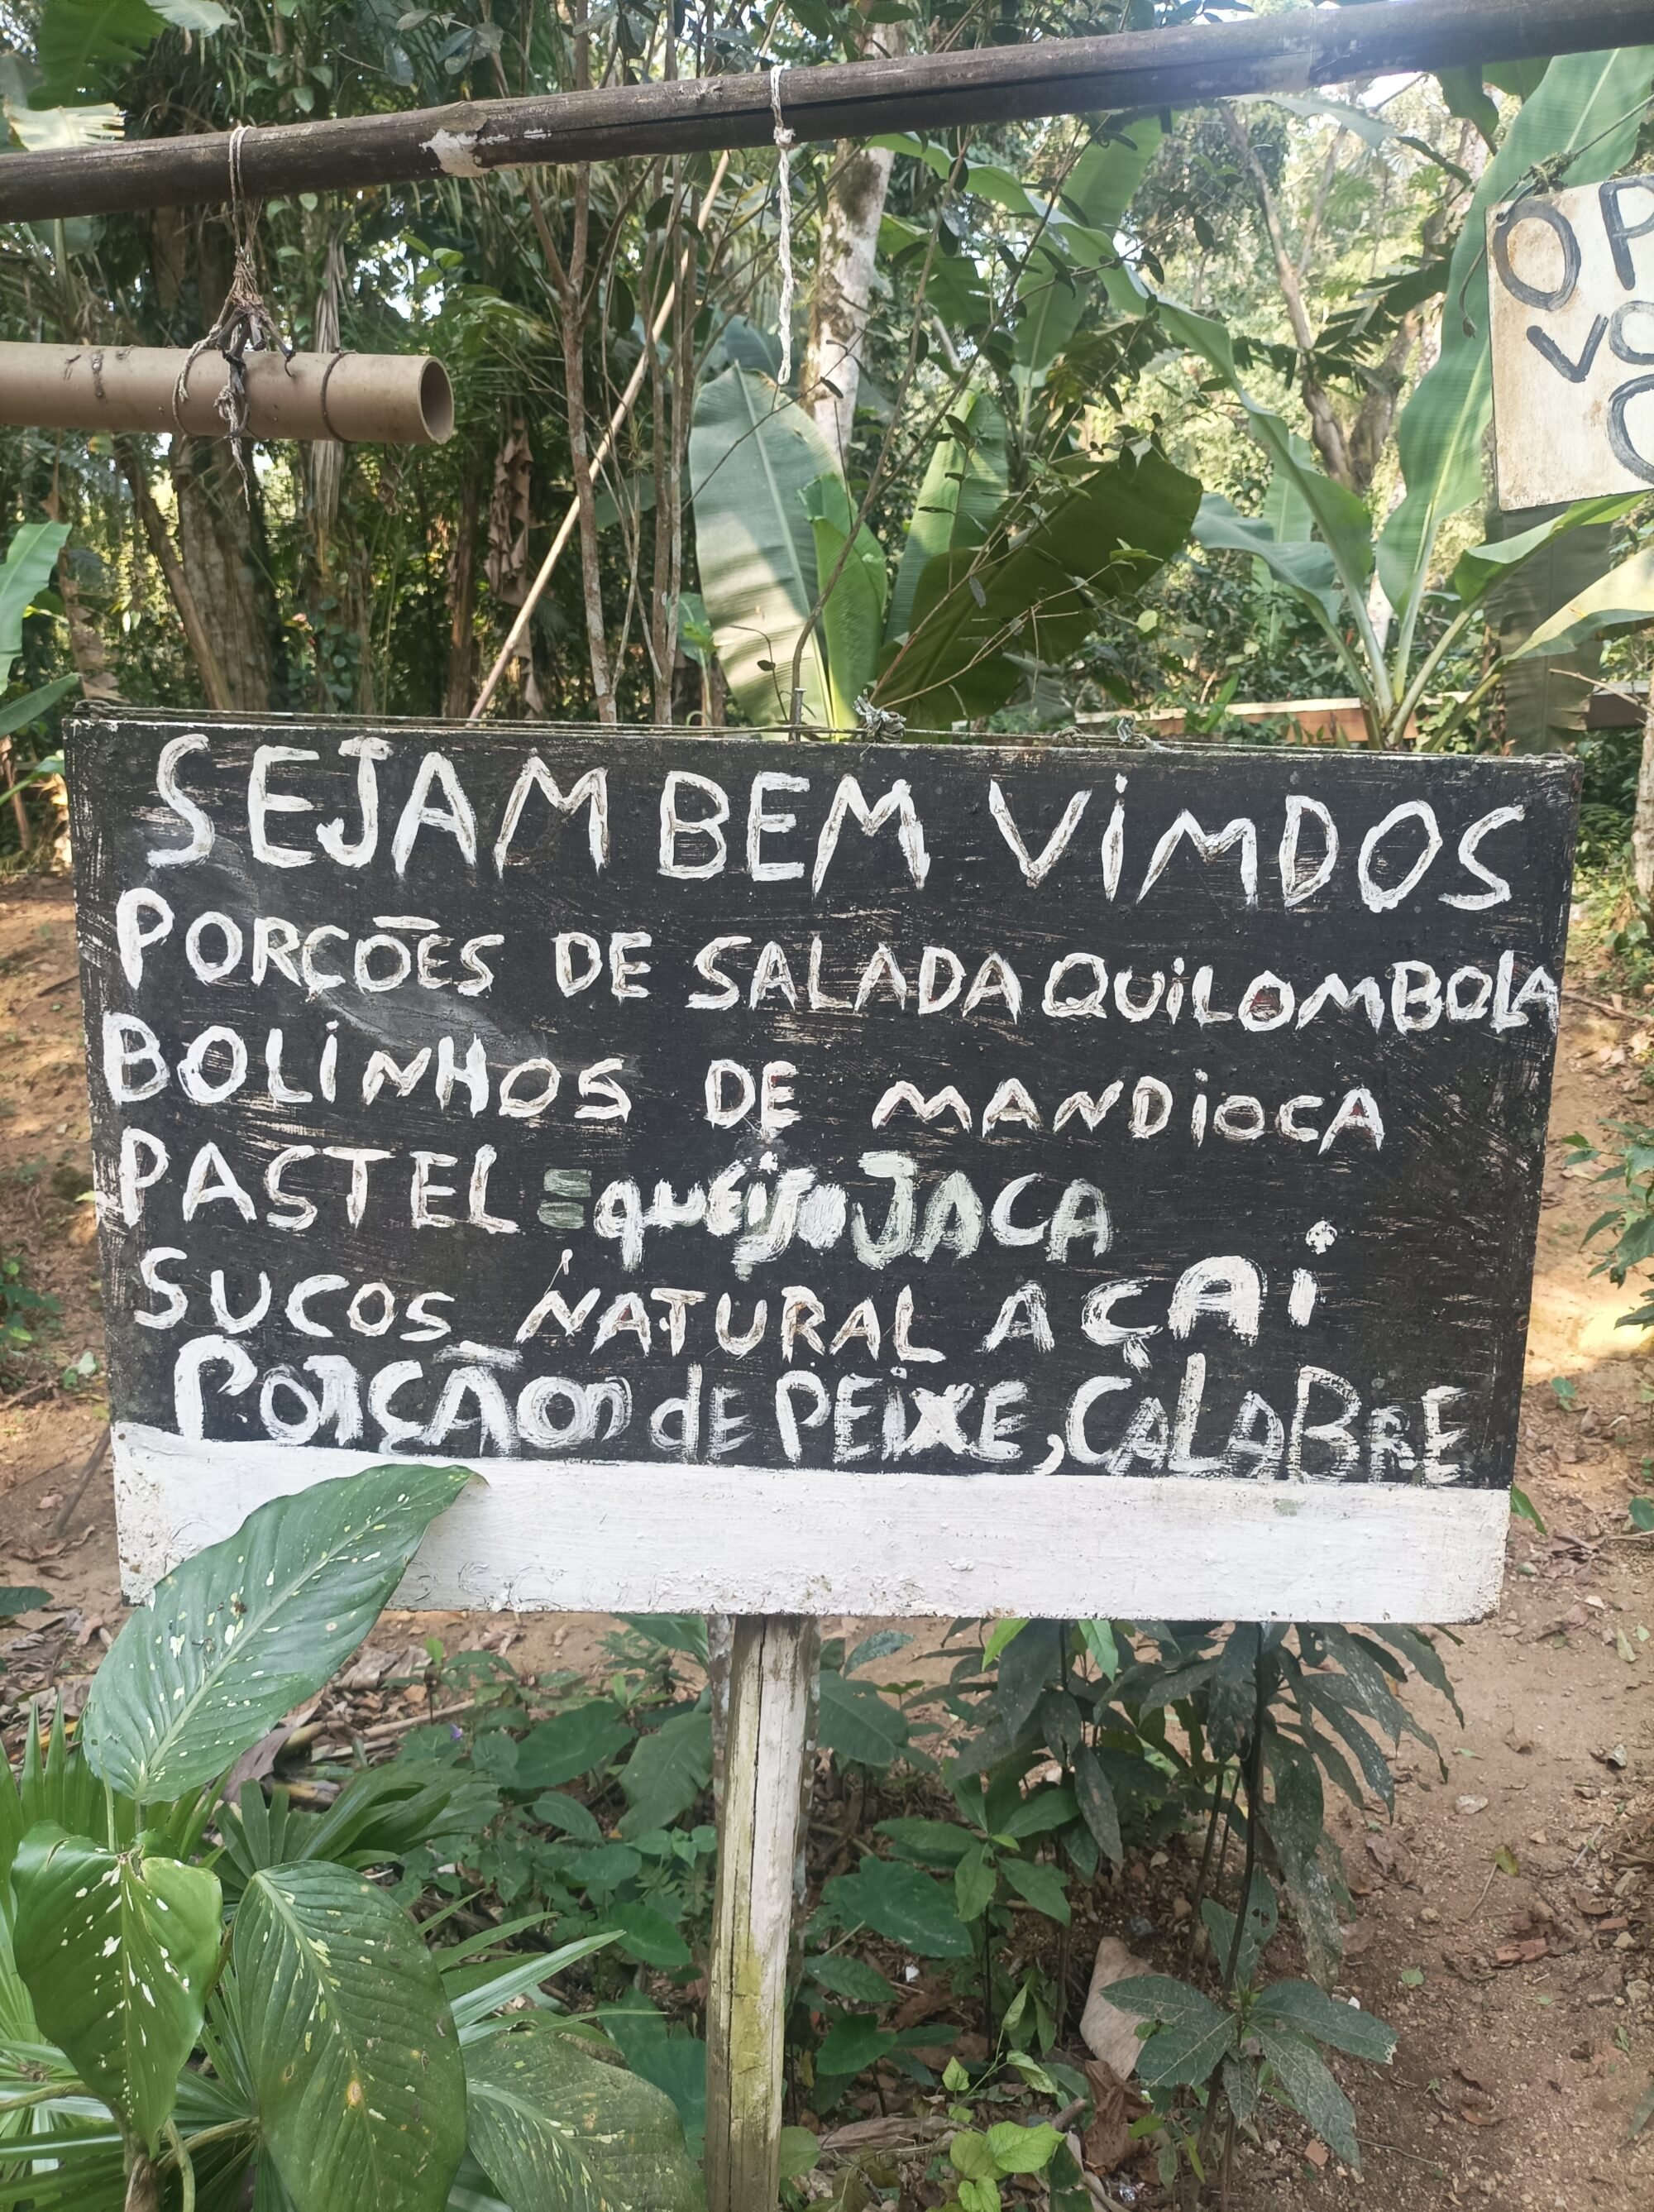 SEJAM BEM VIMDOS
PORÇÕES DE SALADA QUILOMBOLA
BOLINHOS DE MANDIOCA
PASTEL = queijo JACA
SUCOS NATURAL AÇAI
PORÇÃO de PEIXE, CALABRE
OP
VO